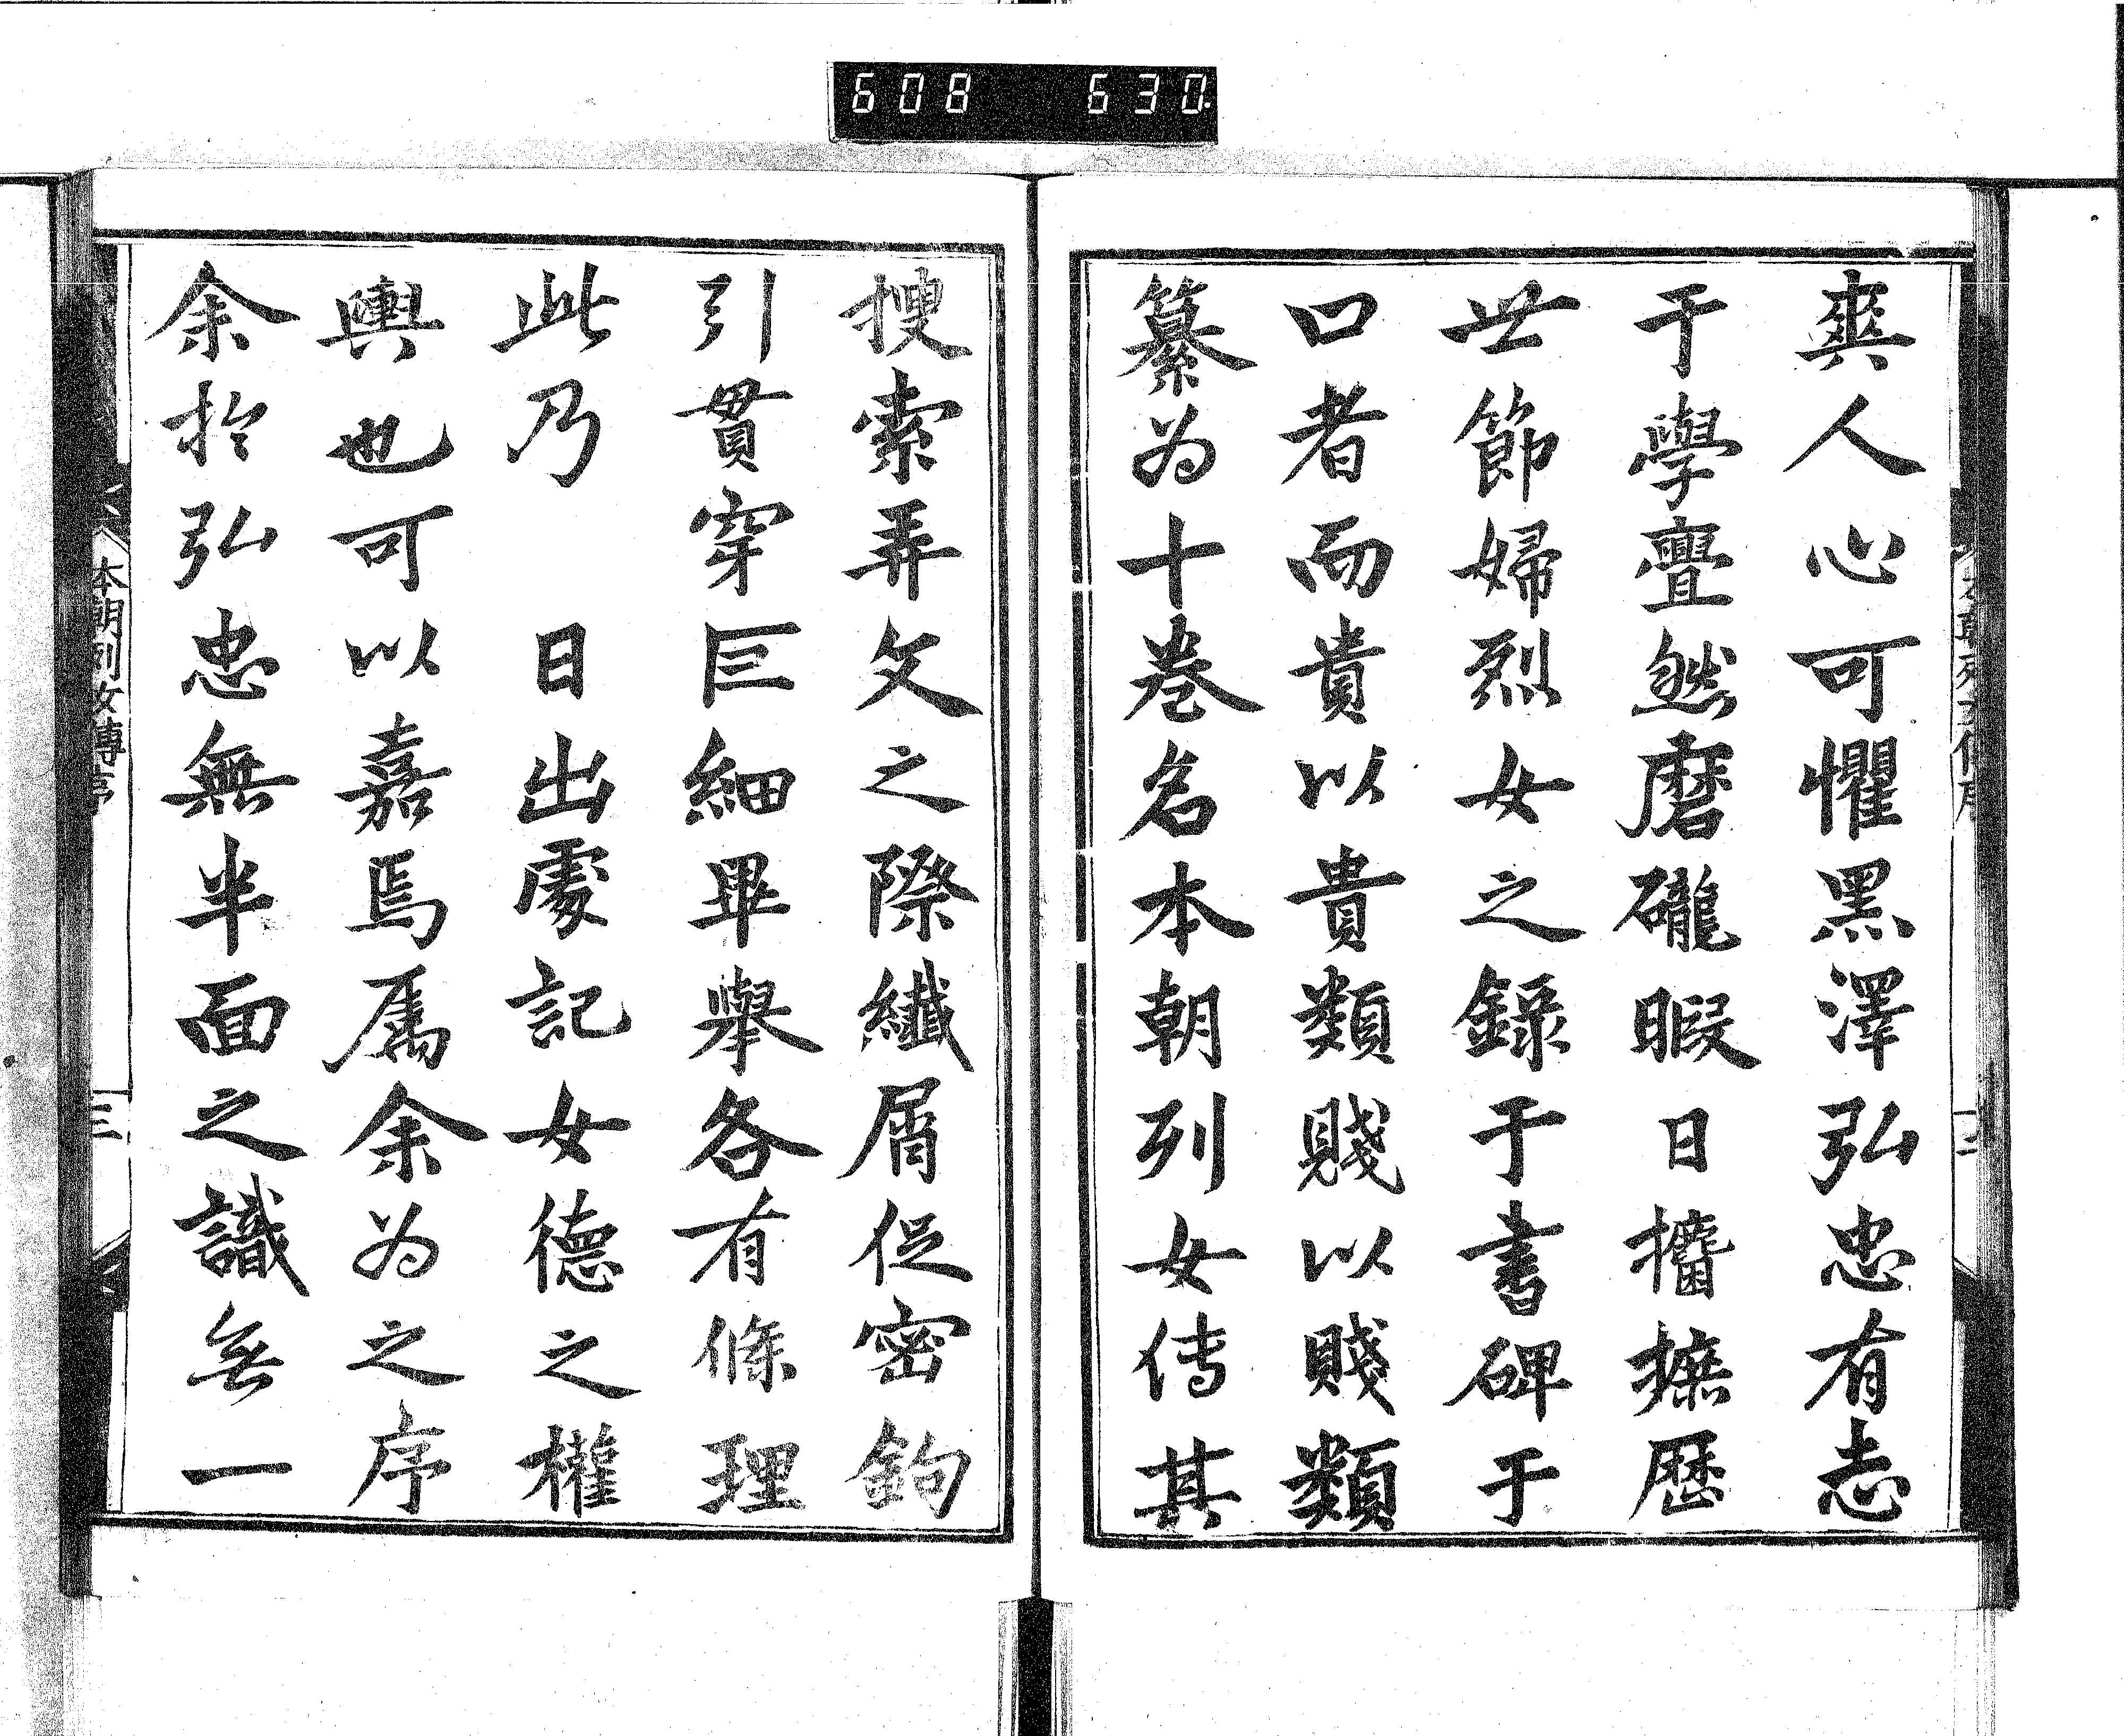 608 630.
爽人心可懼黑澤弘忠有志
于學亹然磨礲暇日攟摭歷
世節婦烈女之錄于書碑于
口者而貴以貴類賤以賤類
纂為十卷名本朝列女传其
搜索弄文之際纖屑促密鉤
引貫穿巨細畢舉各有條理
此乃 日出處記女德之權
輿也可以嘉焉屬余為之序
余於弘忠無半面之識無一
本朝列女傳序 三